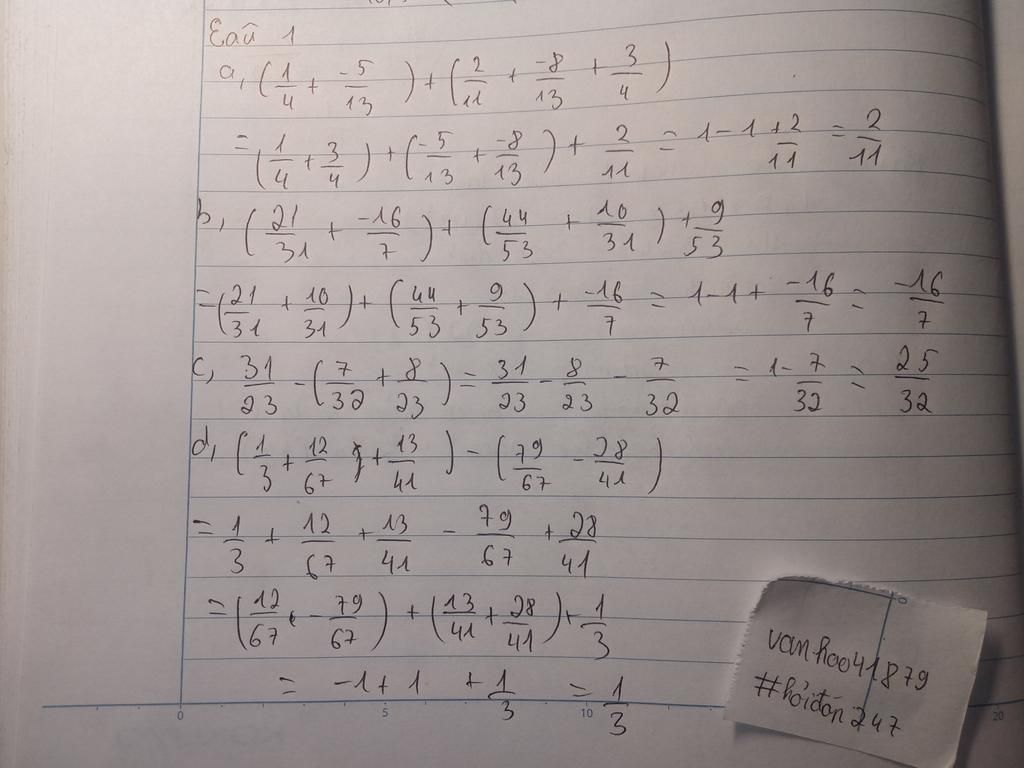 Bài 1
a, (1/4 + -5/13) + (2/11 + -8/13 + 3/4)
= (1/4 + 3/4) + (-5/13 + -8/13) + 2/11 = 1 - 1 + 2/11 = 2/11
b, (21/31 + -16/7) + (44/53 + 10/31) + 9/53
= (21/31 + 10/31) + (44/53 + 9/53) + -16/7 = 1 - 1 + -16/7 = -16/7
c, 31/23 - (7/32 + 8/23) = 31/23 - 8/23 - 7/32 = 1 - 7/32 = 25/32
d, (1/3 + 12/67 + 13/41) - (79/67 - 28/41)
= 1/3 + 12/67 + 13/41 - 79/67 + 28/41
= (12/67 - 79/67) + (13/41 + 28/41) + 1/3
= -1 + 1 + 1/3 = 1/3
vanhao41879
#hỏiđón247
0 5 10 20